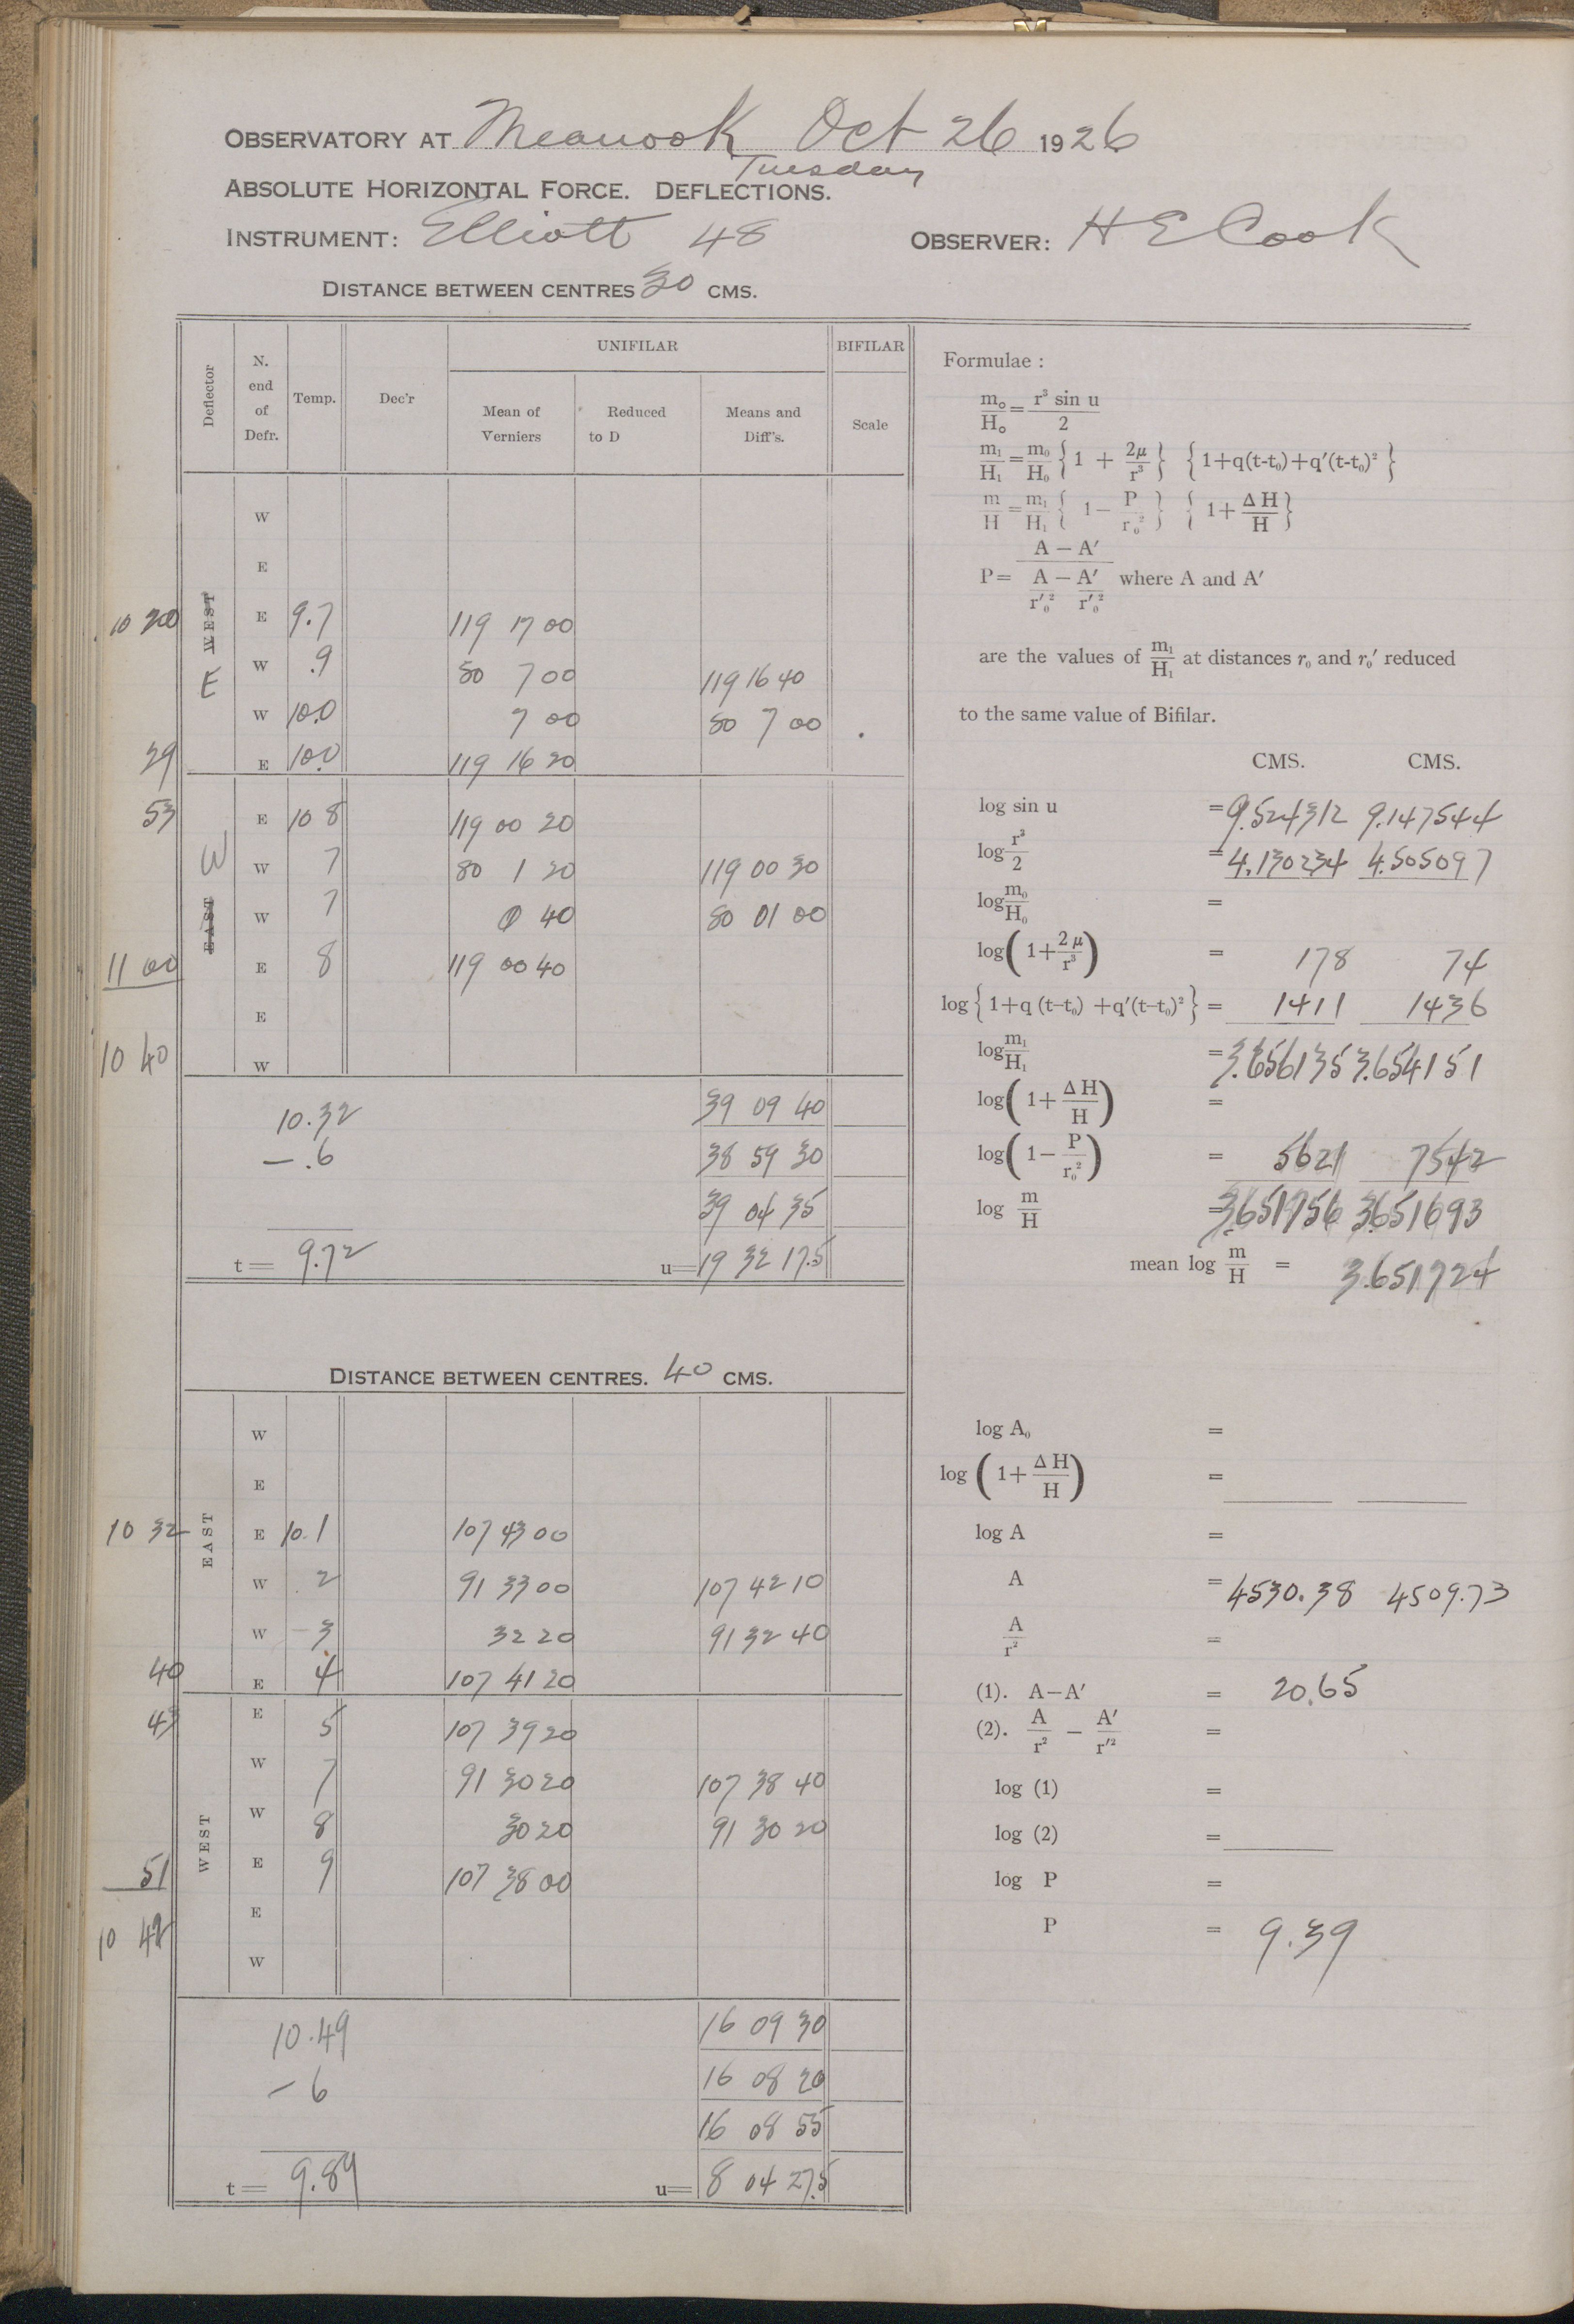 OBSERVATORY AT Meanook Oct 26 1926
Tuesday
ABSOLUTE HORIZONTAL FORCE. DEFLECTIONS.
INSTRUMENT: Elliott 48 OBSERVER: H E Cook
DISTANCE BETWEEN CENTRES 30 CMS.
Deflector N. end of Defr. Temp. Dec'r UNIFILAR BIFILAR
Mean of Verniers Reduced to D Means and Diff's. Scale
W
E
10 20 WEST E 9.7 119 17 00
E W .9 80 7 00 119 16 40
W 10.0 7 00 80 7 00
29 E 10.0 119 16 20
53 E 10 8 119 00 20
W W 7 80 1 20 119 00 30
EAST W 7 0 40 80 01 00
11 00 E 8 119 00 40
E
10 40 W
10.32 39 09 40
- .6 38 59 30
39 04 35
t = 9.72 u = 19 32 17.5
Formulae :
m₀/H₀ = r³ sin u/2
m₁/H₁ = m₀/H₀ {1 + 2μ/r³} {1+q(t-t₀)+q′(t-t₀)²}
m/H = m₁/H₁ {1 - P/r₀²} {1+ΔH/H}
P = A - A′ / A/r′₀² - A′/r′₀² where A and A′
are the values of m₁/H₁ at distances r₀ and r₀′ reduced
to the same value of Bifilar.
CMS. CMS.
log sin u = 9.524312 9.147544
log r²/2 = 4.130234 4.505097
log m₀/H₀ =
log(1+2μ/r³) = 178 74
log{1+q (t-t₀) +q′(t-t₀)²} = 1411 1436
log m₁/H₁ = 3.656135 3.654151
log(1+ΔH/H) =
log(1-P/r₀²) = 5621 7542
log m/H = 3651756 3651693
mean log m/H = 3.651724
DISTANCE BETWEEN CENTRES. 40 CMS.
W
E
10 32 EAST E 10.1 107 43 00
W 2 91 33 00 107 42 10
W 3 32 20 91 32 40
40 E 4 107 41 20
43 E 5 107 39 20
W 7 91 30 20 107 38 40
WEST W 8 30 20 91 30 20
51 E 9 107 38 00
E
10 42 W
10.49 16 09 30
- 6 16 08 20
16 08 55
t = 9.89 u = 8 04 27.5
log A₀ =
log (1+ΔH/H) =
log A =
A = 4530.38 4509.73
A/r² =
(1). A-A′ = 20.65
(2). A/r² - A′/r′² =
log (1) =
log (2) =
log P =
P = 9.39